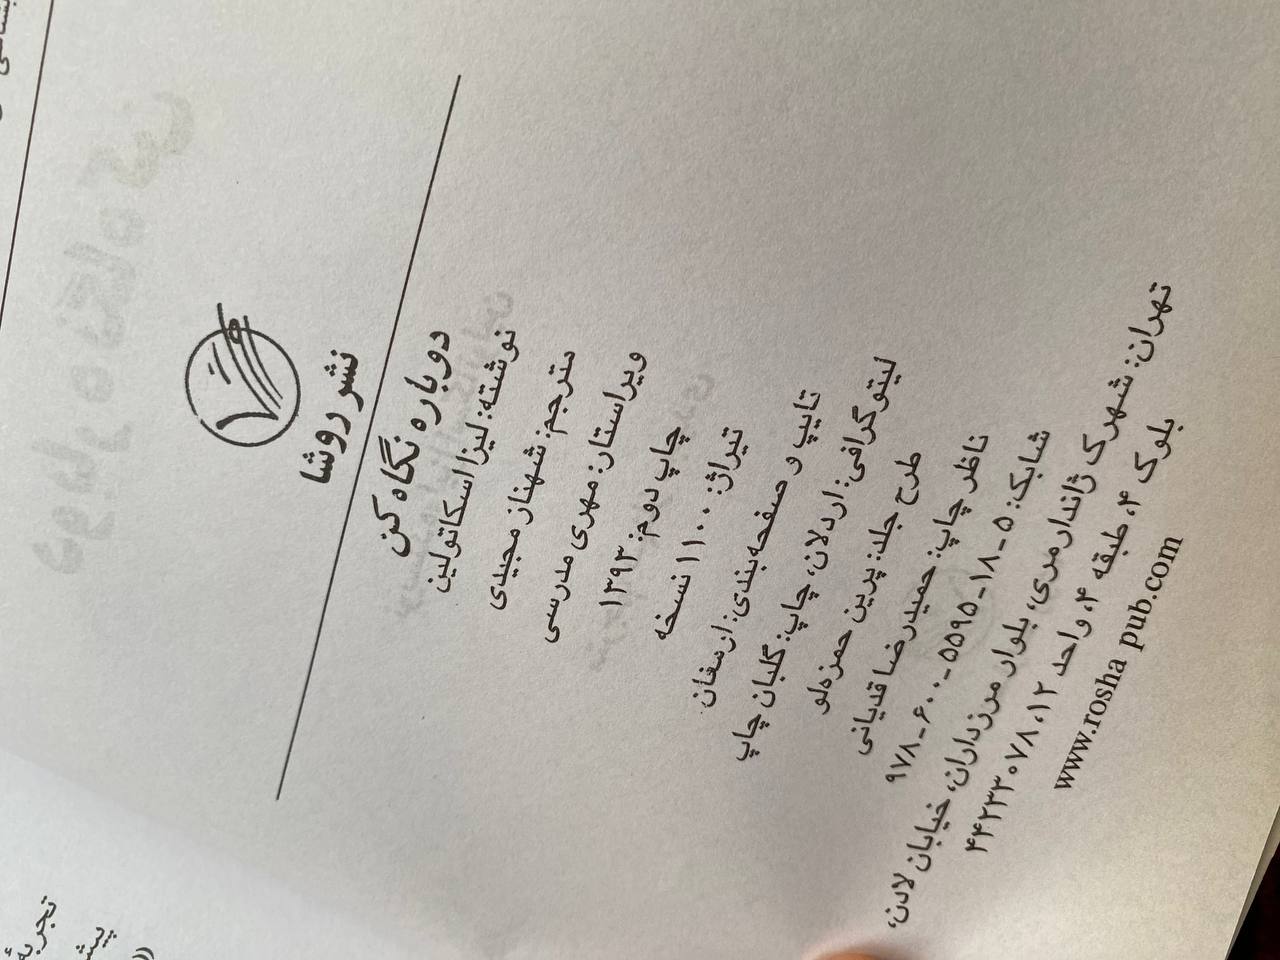 نشر روشا
دوباره نگاه کن
نوشته: لیزا اسکاتولین
مترجم: شهناز مجیدی
ویراستار: مهری مدرسی
چاپ دوم: ۱۳۹۳
تیراژ: ۱۱۰۰ نسخه
تایپ و صفحه‌بندی: ارمغان
لیتوگرافی: اردلان، چاپ: گلبان چاپ
طرح جلد: پرین حمزه‌لو
ناظر چاپ: حمیدرضا قدیانی
شابک: ۵-۱۸-۵۵۹۵-۶۰۰-۹۷۸
تهران: شهرک ژاندارمری، بلوار مرزداران، خیابان لادن،
بلوک ۴، طبقه ۴، واحد ۱۲، ۴۴۲۳۳۰۷۸
www.rosha pub.com
تجربهٔ